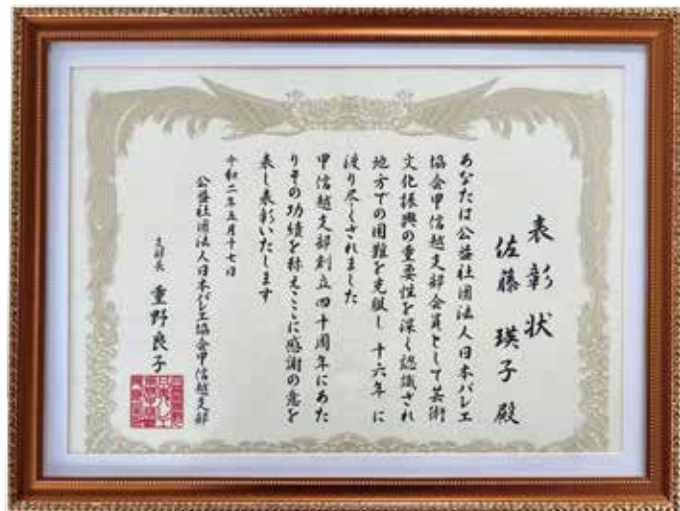 表彰状
佐藤 瑛子 殿
あなたは公益社団法人日本バレエ
協会甲信越支部会員として芸術
文化振興の重要性を深く認識され
地方での困難を克服し 十六年 に
渡り尽くされました
甲信越支部創立四十周年にあた
りその功績を称えここに感謝の意を
表し表彰いたします
令和二年五月十七日
公益社団法人日本バレエ協会甲信越支部
支部長 重野良子